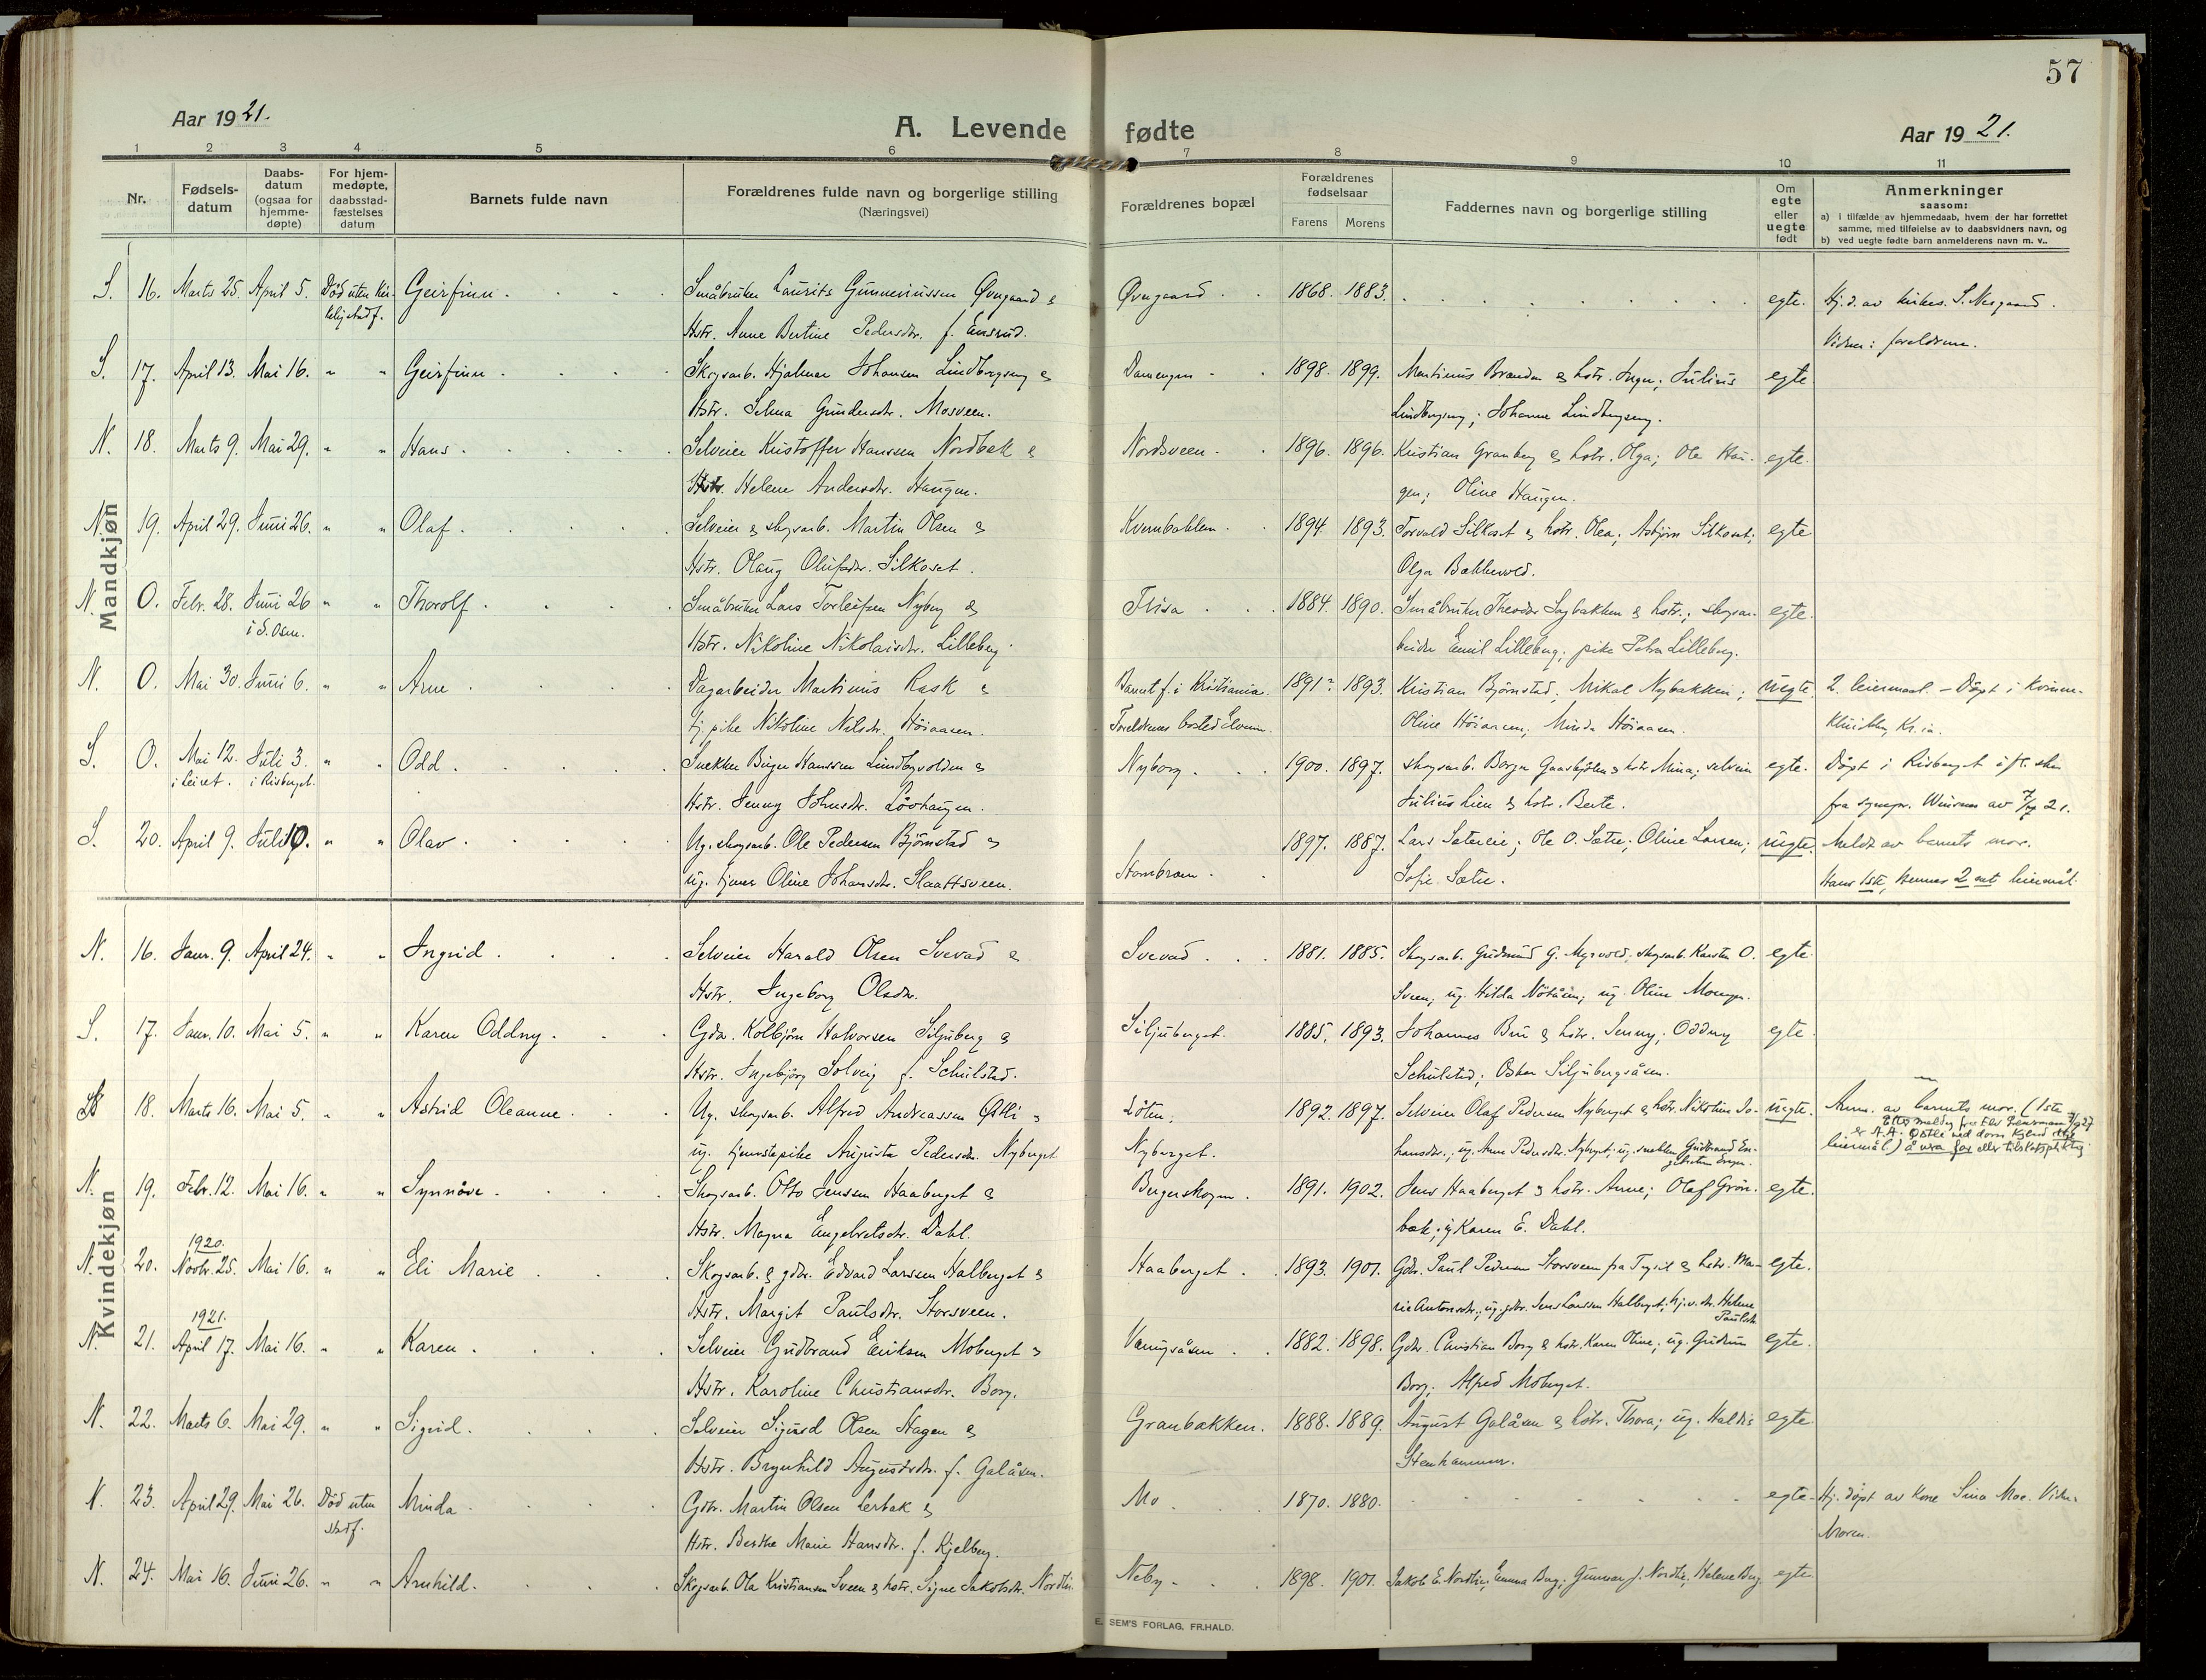 57
Aar 1921.
A. Levende fødte
Aar 1921.
1 2 3 4 5 6 7 8 9 10 11
Nr.
Fødsels-
datum
Daabs-
datum
(ogsaa for
hjemme-
døpte)
For hjem-
medøpte,
daabsstad-
fæstelses
datum
Barnets fulde navn
Forældrenes fulde navn og borgerlige stilling
(Næringsvei)
Forældrenes bopæl
Forældrenes
fødselsaar
Farens Morens
Faddernes navn og borgerlige stilling
Om
egte
eller
uegte
født
Anmerkninger
saasom:
a) i tilfælde av hjemmedaab, hvem der har forrettet
samme, med tilføielse av to daabsvidners navn, og
b) ved uegte fødte barn anmelderens navn m. v..
Mandkjøn
S. 16. Marts 25. April 5. Död uten Geirfinn. Småbruker Laurits Gunneriussen Øvergaard & Øvergaard. 1868. 1883. egte. Hj. d. av S. Nesgaard.
Hstr. Anne Bertine Pedersdtr. f. Vidner: foreldrene.
S. 17. April 13. Mai 16. " " Geirfinn. Skogsarb. Hjalmar Johansen Lindbergseng & Damengen. 1898. 1899. Martinus Brænden & hstr. Inga; Julius egte
Hstr. Selma Gundersdtr. Mosveen. Lindbergseng; Johanne Lindbergseng.
N. 18. Marts 9. Mai 29. " " Hans. Selveier Kristoffer Hansen Nordbæk & Nordsveen. 1896. 1896. Kristian Granberg & hstr. Olga; Ole Hau- egte.
Hstr. Helene Andersdtr. Haugen. gen; Oline Haugen.
N. 19. April 29. Juni 26. " " Olaf. Selveier & skogsarb. Martin Olsen & Kvernbakken. 1894 1893. Torvald Silkoset & hstr. Olea; Asbjørn Silkoset; egte
Hstr. Olaug Olufsdtr. Silkoset. Olga Bækkevold.
N. 0. Febr. 28. Juni 26 " " Thorolf. Småbruker Lars Torleifsen Nyberg & Flisa. 1884. 1890. Småbruker Theodor Sagbakken & hstr.; skogsar- egte.
i S. Osen. Hstr. Nikoline Nikolaisdtr. Lilleberg. beider Emil Lilleberg; pike Petra Lilleberg.
N. 0. Mai 30. Juni 6. " " Arne. Dagarbeider Martinius Rask & Barnet f. i Kristiania. 1891? 1893. Kristian Bjørnstad, Mikal Nybakken; uegte. 2. leiermaal. – Døpt i Kvinne-
tj. pike Nikoline Nilsdtr. Höiaasen. Foreldrenes bosted Elverum. Oline Höiaasen; Minda Höiaasen. klinikken, Kr.ia.
S. 0. Mai 12. Juli 3. " " Odd. Snekker Birger Hanssen Lindbergvolden & Nyborg. 1900. 1897. skogsarb. Borger Gaasbjølen & hstr. Mina; selveier egte. Døpt i Risberget
i Leiret. i Risberget. Hstr. Jenny Johnsdtr. Løvhaugen. Julius Lien & hstr. Berte. fra sognepr. av 7/7 21.
S. 20. April 9. Juli 10. " " Olav. Ug. skogsarb. Ole Pedersen Bjørnstad & 1897. 1887. Lars Ole O. Sætre; Oline Larsen; uegte. Meldt av barnets mor.
ug. tjener Oline Johansdtr. Slaattsveen. Stambraen. Sofie Sætre. Hans 1ste, hennes 2net leiermål.
Kvindekjøn
N. 16. Janr. 9. April 24. " " Ingrid. Selveier Harald Olsen Svevad & Svevad. 1881. 1885. Skogsarb. Gudmund G. Myrvold; skogsarb. Karsten O. egte.
Hstr. Ingeborg Olsdtr. Sveen; ug. Hilda Nötåsen; ug. Oline Moengen.
S. 17. Janr. 10. Mai 5. " " Karen Oddny. Gdbr. Kolbjörn Halvorsen Siljuberg & Siljuberget. 1885. 1893. Johannes Bru & hstr. Jenny; Oddny egte.
Hstr. Ingebjörg Solveig f. Schulstad. Schulstad; Oskar Siljubergsåsen.
18. Marts 16. Mai 5. " " Astrid Oleanne. Ug. skogsarb. Alfred Andreassen Østli & Löten. 1892. 1897. Selveier Olaf Pedersen Nyberget & hstr. Nikoline Jo- uegte. Anm. av barnets mor. (1ste
ug. tjenestepike Augusta Pedersdtr. Nyberget. Nyberget. hansdtr.; ug. Anne Pedersdtr. Nyberget; ug. snekker Gudbrand En- leiermål.)
gebretsen
Efter melding fra Elv. lensmann
er A.A. Østli ved dom kjend
å vera far eller tilskotspliktig
N. 19. Febr. 12. Mai 16. " " Synnöve. Skogsarb. Otto Jenssen Haaberget & Bergerskogen. 1891. 1902. Jens Haaberget & hstr. Anne; Olaf Grön- egte.
Hstr. Magna Engebretsdtr. Dahl. bæk; ug. Karen E. Dahl.
N. 20. 1920. Novbr. 25. Mai 16. " " Eli Marie. Skogsarb. & gdbr. Edvard Larssen Halberget & Haaberget. 1893. 1901. Gdbr. Paul Pedersen Storsveen fra Trysil & hstr. Ma- egte.
Hstr. Margit Paulsdtr. Storsveen. rie Antonsdtr.; ug. gdbr. Jens Larssen Halberget; Helene
Paulsdtr.
N. 21. 1921. April 17. Mai 16. " " Karen. Selveier Gudbrand Eriksen Moberget & Vangsåsen. 1882. 1898. Gdbr. Christian Borg & hstr. Karen Oline; ug. Gudrun egte.
Hstr. Karoline Christiansdtr. Borg. Borg; Alfred Moberget.
N. 22. Marts 6. Mai 29. " " Sigrid. Selveier Sigurd Olsen Hagen & Granbakken. 1888. 1889. August Galåsen & hstr. Thora; ug. Haldis egte
Hstr. Brynhild Augustsdtr. f. Galåsen. Stenhammer.
N. 23. April 29. Mai 26. Död uten Minda. Gdbr. Martin Olsen Lerbak & Mo. 1870. 1880. egte. Hj. döpt av kone Sina Moe. Vidn.
stadf. Hstr. Berthe Marie Hansdtr. f. Kjelberg. Moren.
N. 24. Mai 16. Juni 26. " " Arnhild. Skogsarb. Ola Kristiansen Sveen & hstr. Signe Jakobsdtr. Nordli. Neby. 1898. 1901. Jakob E. Nordli; Emma Berg; Gunnar J. Nordli; Helene Berg. egte.
E. SEM'S FORLAG, FR.HALD.